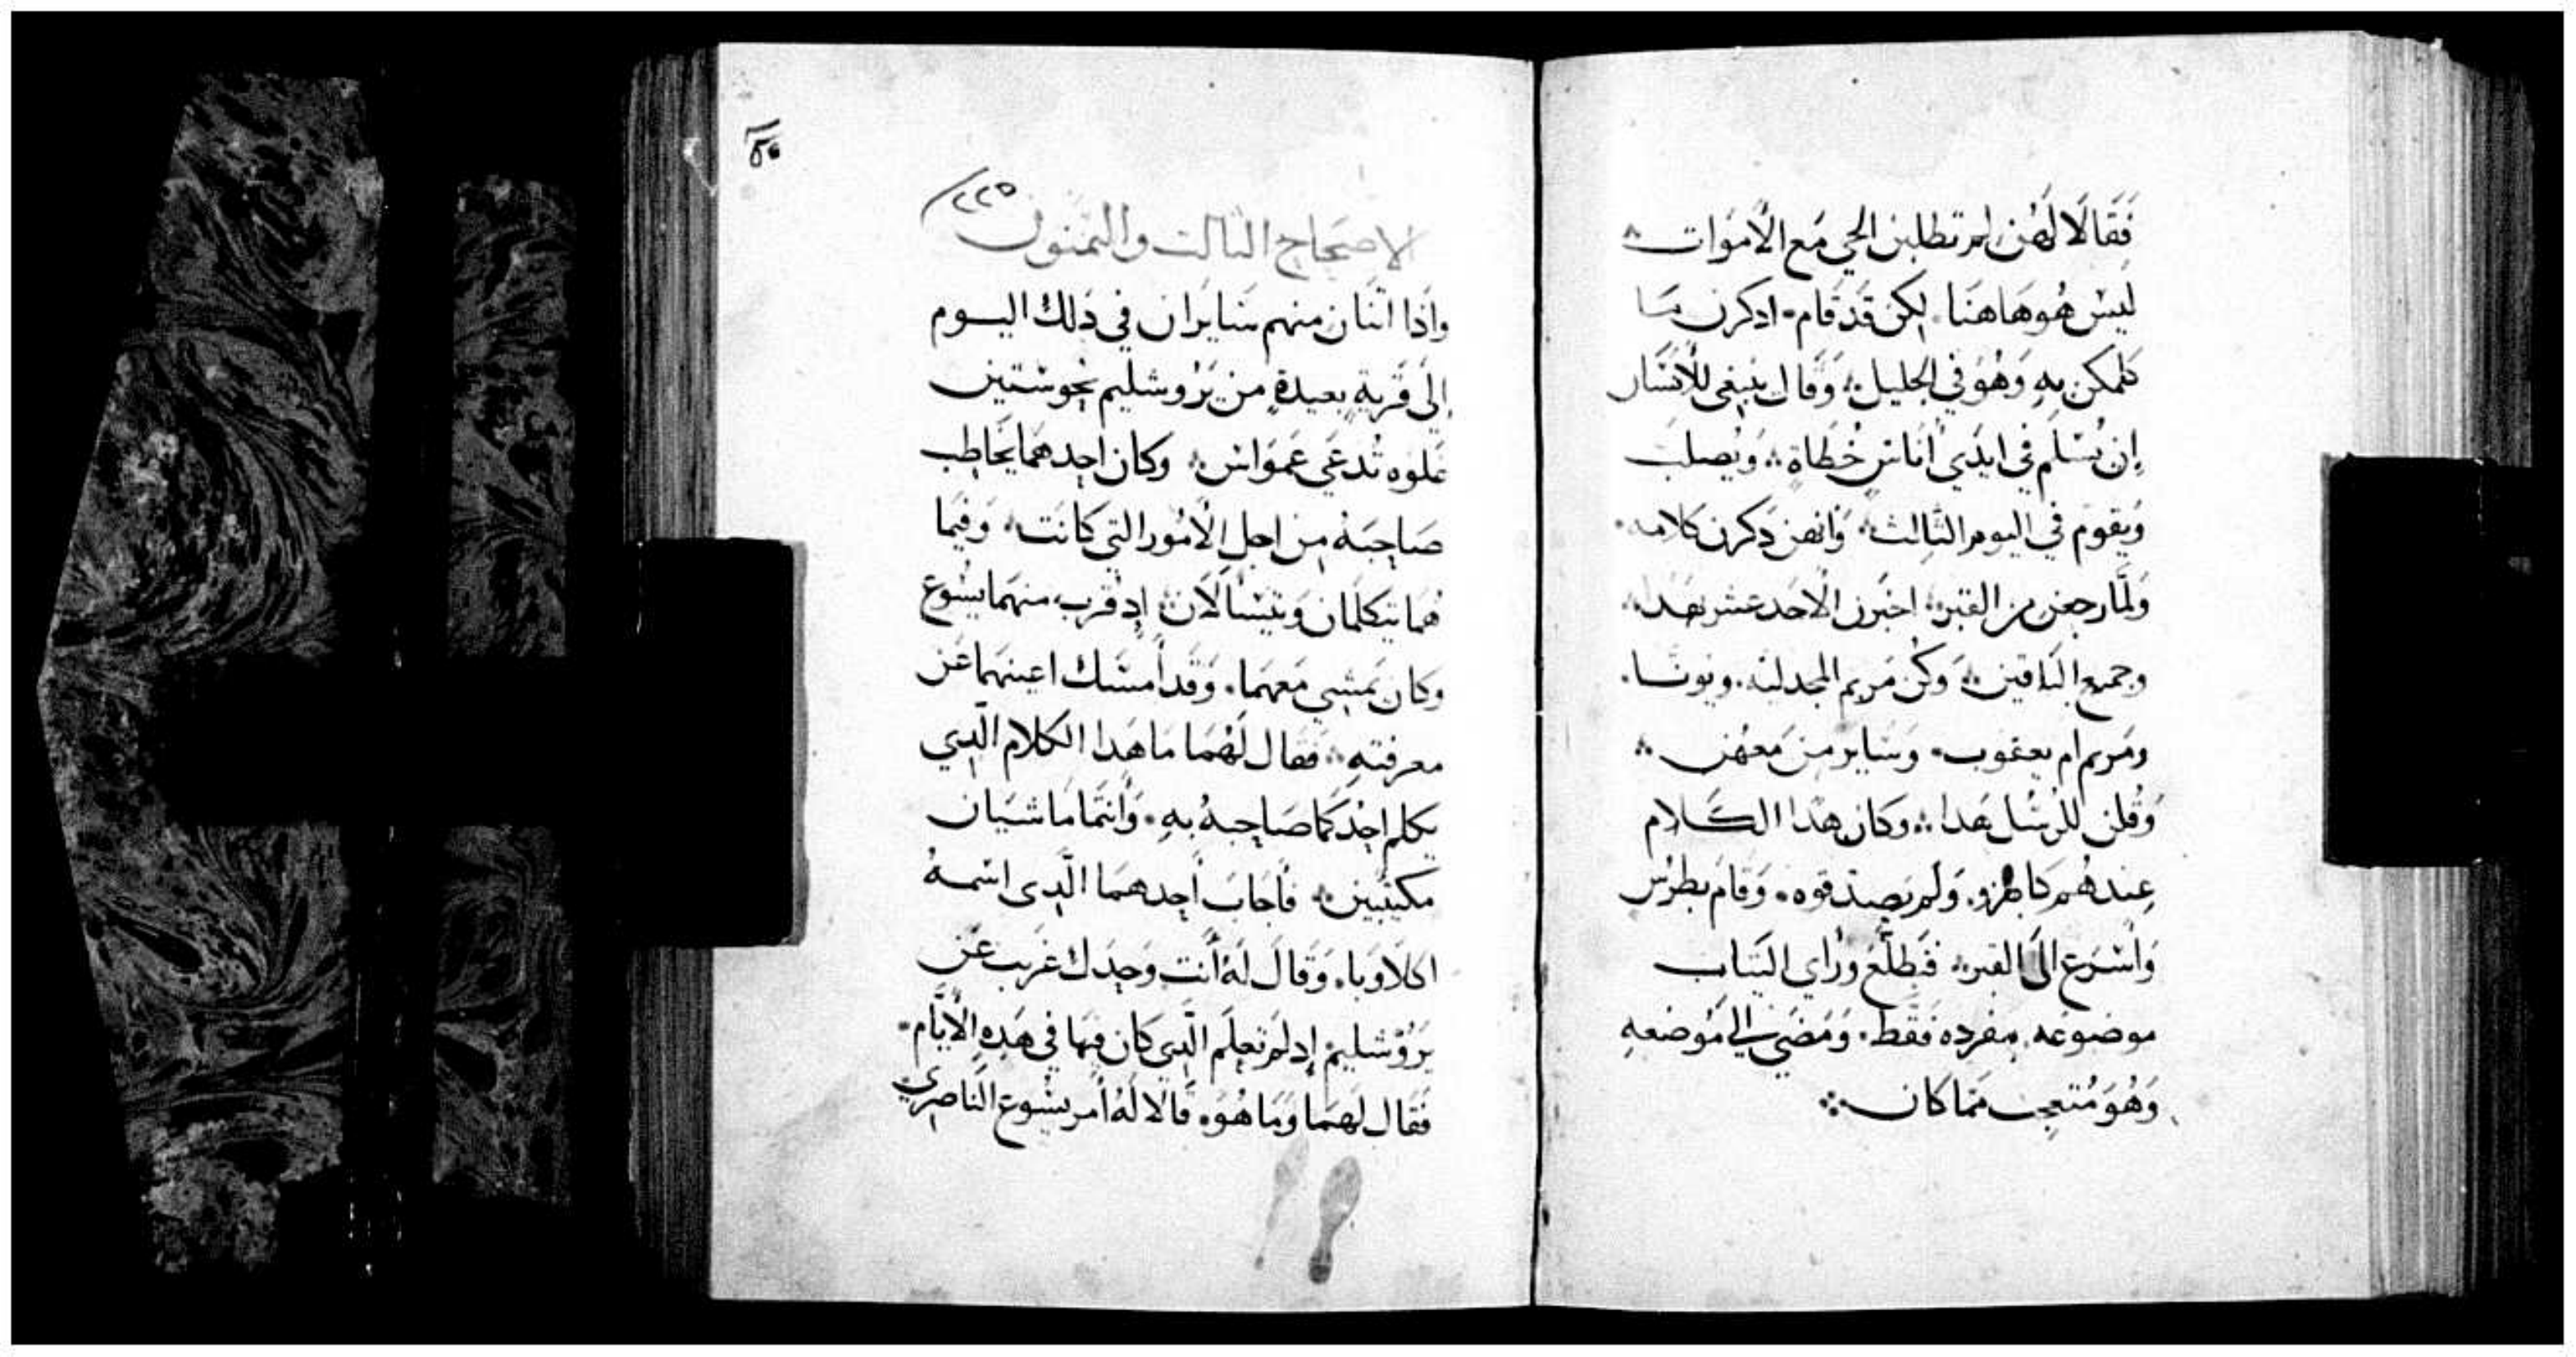 فَقَالَا لَهُن لم تطلبن الحي مَع الأموَات
ليسَ هُو هَاهنَا. لكن قَد قَام. ادكرن مَا
كلمكن به وَهُوَ في الجليل؞ وَقال ينبغي للأنسَان
إن يُسَلم في ايدَي أناسٍ خُطَاةٍ؞ وَيُصلبَ
وَيقوم في اليوم الثَالِث؞ وَانهن دَكرن كلامه.
وَلمَّا رجعن من القبر؞ اخبَرن الأحَد عشر بهَدا؞
وجميع البَاقين؞ وَكُن مَريم المجدليَه. ويونَا.
ومَريم ام يعقوب. وَسَاير من مَعهُن؞
وَقُلن للرسُل هَدا؞ وكان هَدا الكَلام
عِندهُم كالهزو. وَلم يَصَدقوه. وَقام بطرُس
وَاسْرَع الَى القبر؞ فَتطلَّعَ وَرَاي الثيَاب
موضوعَه مفرده فَقَط. وَمَضَي الي مَوضعهِ
وَهُوَ مُتعجب ممَا كان؞
٢٢٥
الاصحَاح التالت والتمنون
وَاِدَا اتنَان منهم سَايرَان في دَلك اليوم
إلَي قَريةٍ بعيدةٍ من يَرُوشليم نحو ستين
غلوه تُدعَي عَموَاس؞ وكان احدهمَا يخَاطب
صَاحِبَهُ مِن اجل الأمُور التي كَانَت؞ وَفيمَا
هُمَا يتكلمَان وَيتسَالَان؞ إد قرب منهمَا يسُوع
وكان يَمشي مَعهمَا. وَقَد أمسَك اعينهمَا عَن
معرفتهِ؞ فقال لَهُمَا مَا هَدا الكلام الَّدِي
يكلم احِدُكمَا صَاحِبهُ بهِ. وَأنتمَا مَاشيَان
مكتئبين؞ فأجَابَ أحِدهمَا الَّدِي اسمهُ
اكلاوَبا. وَقَالَ لَهُ أنت وَحدَك غَريب عَن
يَرُوشليم إد لَم تَعلَم الَّدِي كَان فيهَا في هَدِهِ الأيَّام.
فَقَال لهمَا وَمَا هُوَ. قالا لَهُ أمر يسُوع النَاصِري